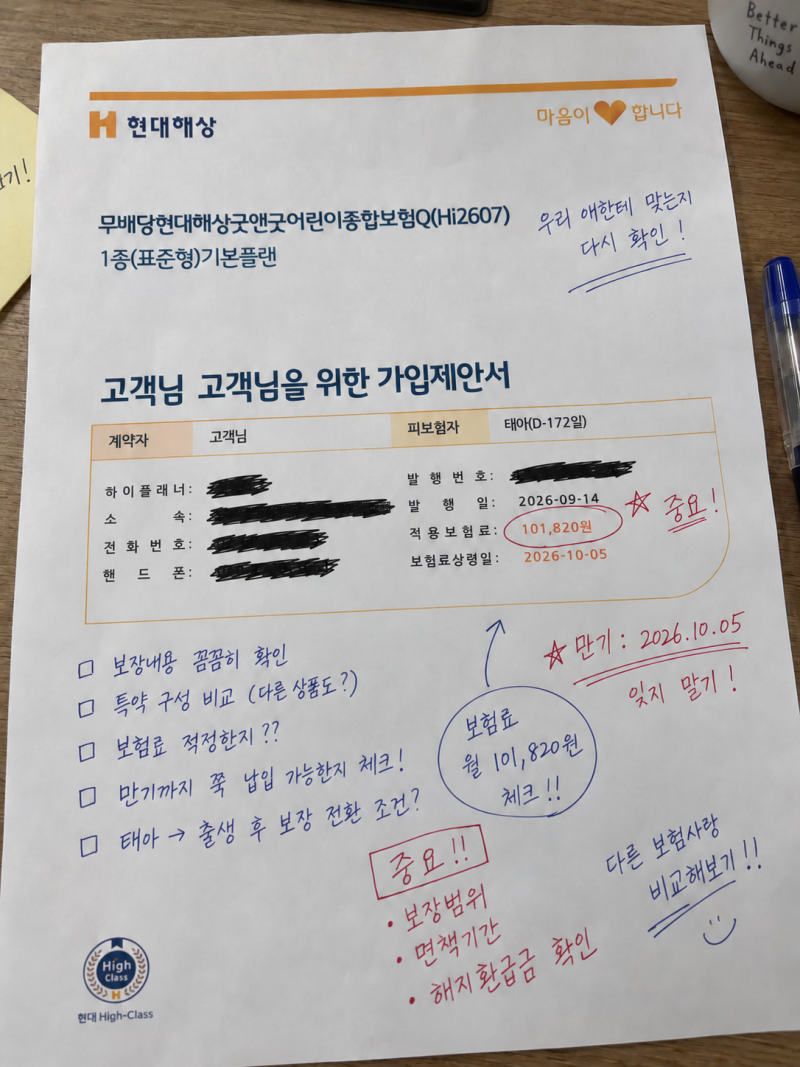 Better
Things
Ahead
기!
현대해상
마음이 합니다
무배당현대해상굿앤굿어린이종합보험Q(Hi2607)
1종(표준형)기본플랜
우리 애한테 맞는지
다시 확인!
고객님 고객님을 위한 가입제안서
계약자 고객님 피보험자 태아(D-172일)
하이플래너:
소 속:
전화번호:
핸드폰:
발행번호:
발 행 일: 2026-09-14
적용보험료: 101,820원
보험료상령일: 2026-10-05
☆ 중요!
☆ 만기: 2026.10.05
잊지 말기!
□ 보장내용 꼼꼼히 확인
□ 특약 구성 비교 (다른 상품도?)
□ 보험료 적정한지??
□ 만기까지 쭉 납입 가능한지 체크!
□ 태아 → 출생 후 보장 전환 조건?
보험료
월 101,820원
체크!!
중요!!
• 보장범위
• 면책기간
• 해지환급금 확인
다른 보험사랑
비교해보기!!
High
Class
현대 High-Class